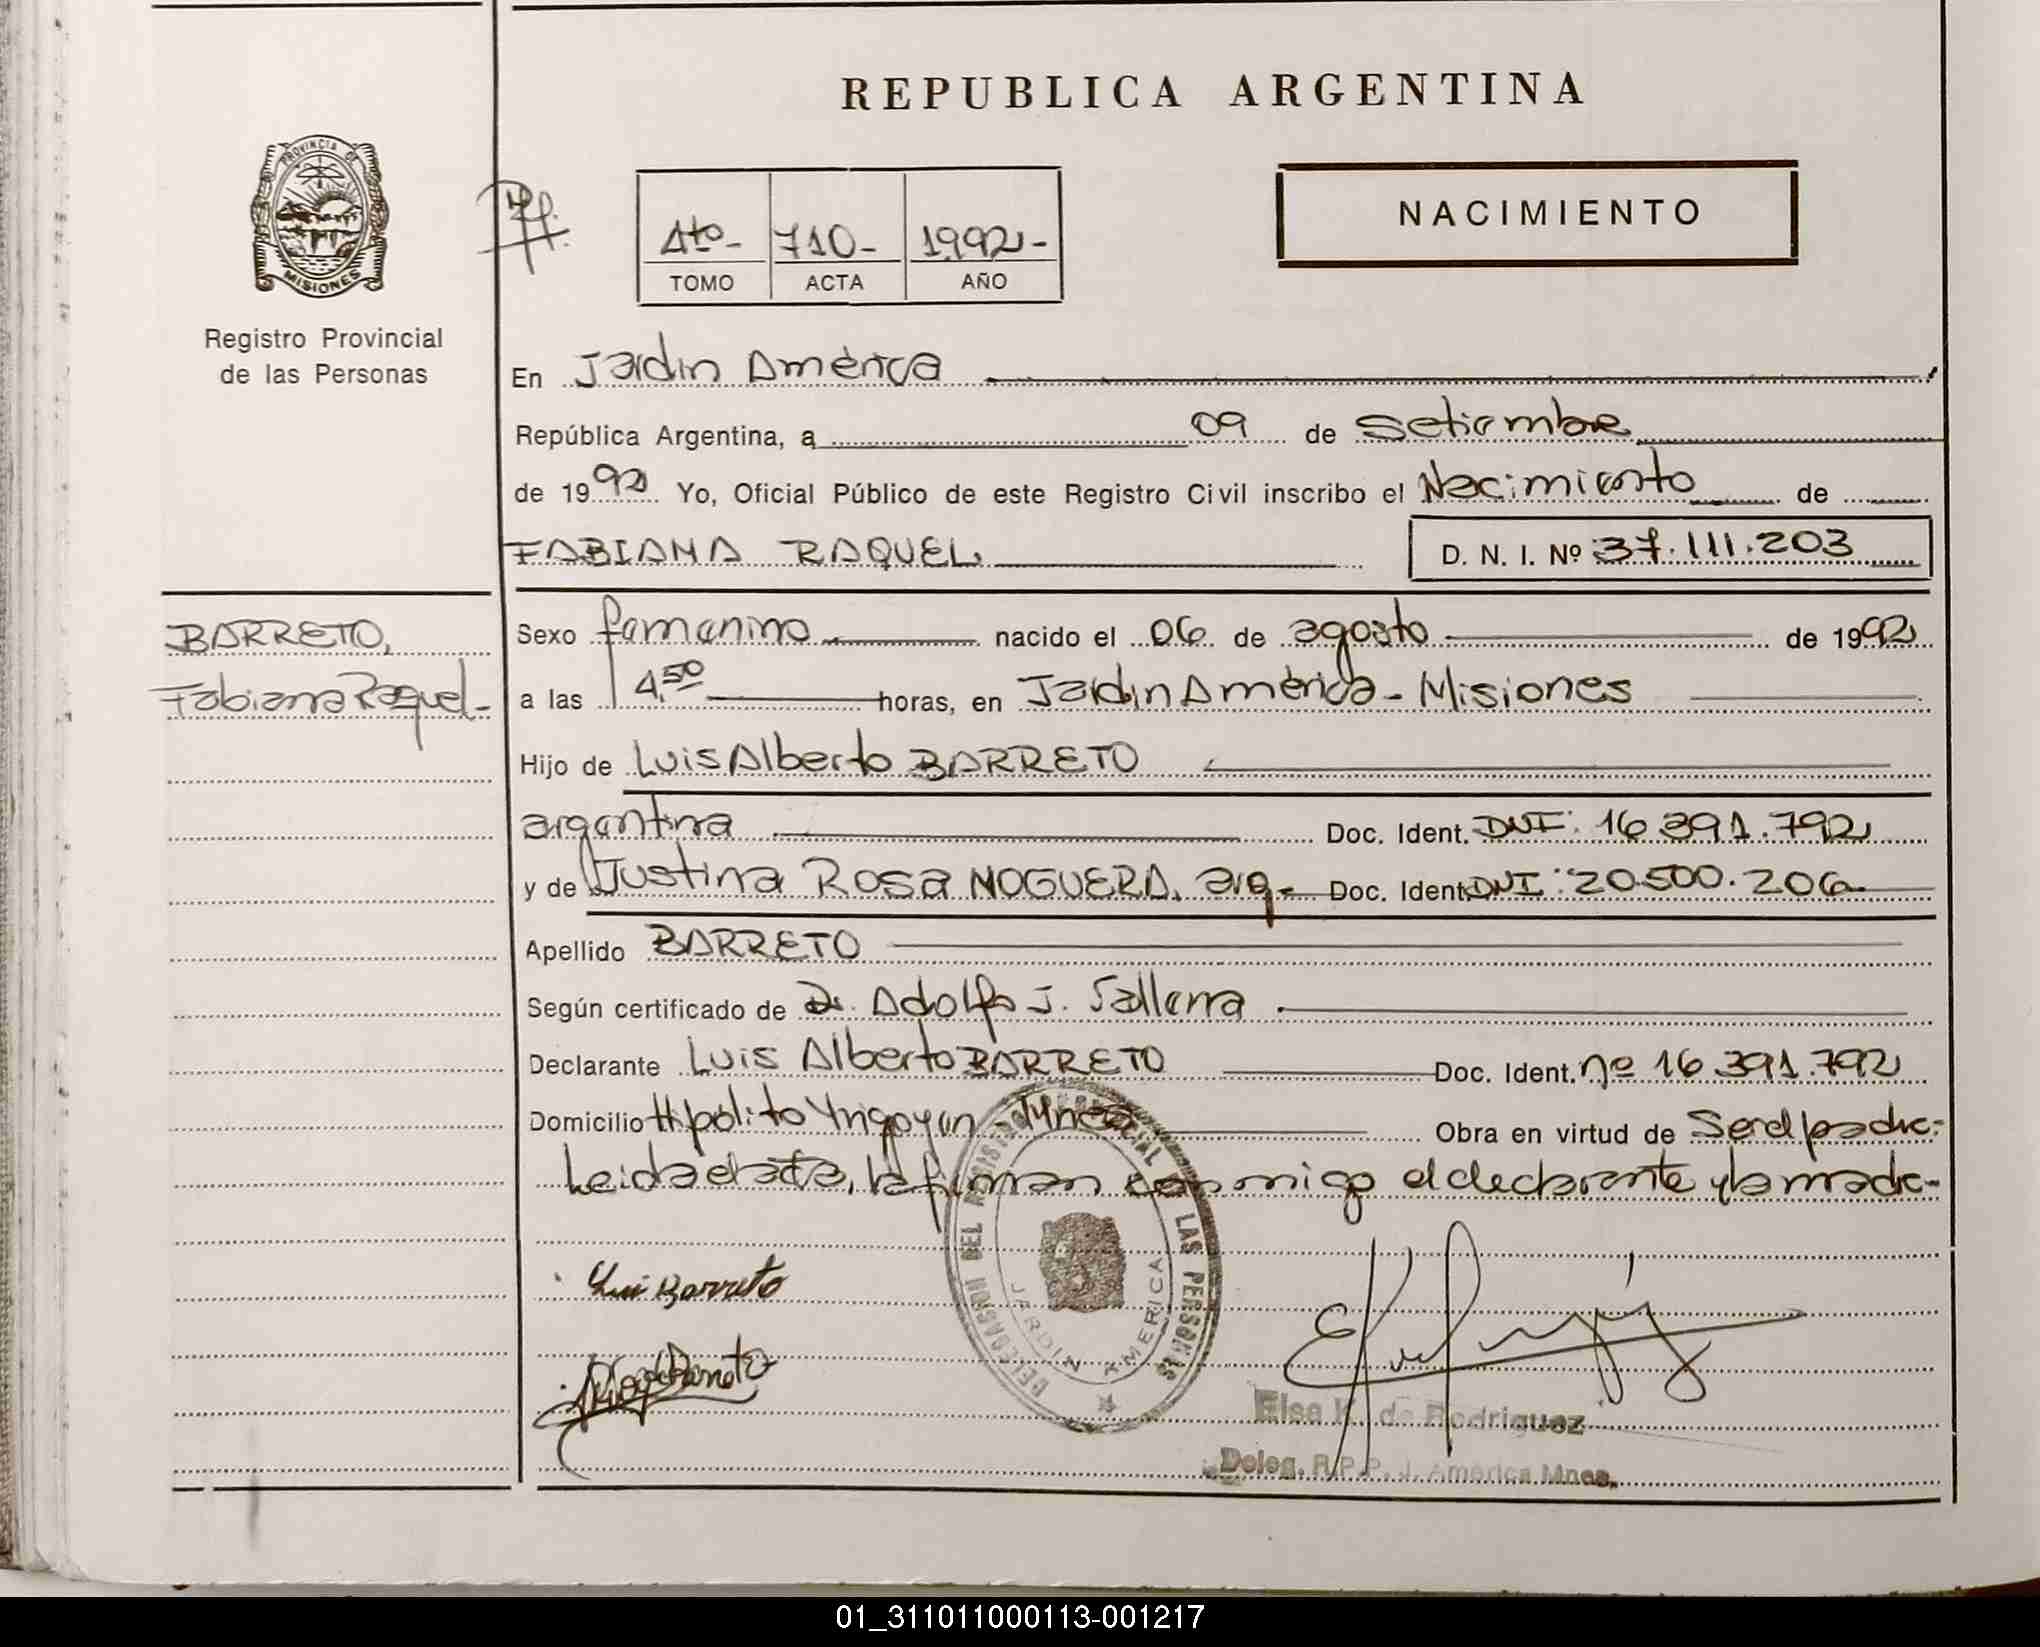 REPUBLICA ARGENTINA
PROVINCIA DE
MISIONES
Registro Provincial
de las Personas
4to- 710- 1992-
TOMO ACTA AÑO
NACIMIENTO
En Jardin América
República Argentina, a 09 de Setiembre
de 1992 Yo, Oficial Público de este Registro Civil inscribo el Nacimiento de
FABIANA RAQUEL D. N. I. Nº 37.111.203
BARRETO,
Fabiana Raquel-
Sexo femenino nacido el 06 de agosto de 1992
a las 4,50 horas, en Jardin América - Misiones
Hijo de Luis Alberto BARRETO
argentina Doc. Ident. DNI: 16.391.792
y de Justina Rosa NOGUERA, arg.- Doc. Ident. DNI: 20.500.206
Apellido BARRETO
Según certificado de Dr. Adolfo J.
Declarante Luis Alberto BARRETO Doc. Ident. nº 16.391.792
Domicilio Hipólito Yrigoyen - Mnes Obra en virtud de Ser el padre.-
Leida el acta, la firman conmigo el declarante y la madre-
Luis Barreto
Barreto
DELEGACION DEL REGISTRO PROVINCIAL DE LAS PERSONAS
JARDIN AMERICA
Elsa K. de Rodriguez
Deleg. R.P.P. J. América Mnes.
01_311011000113-001217